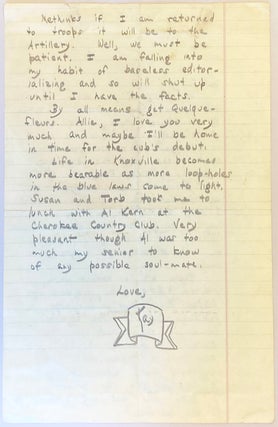 Methinks if I am returned
to troops it will be to the
Artillery. Well, we must be
patient. I am falling into
my habit of baseless editor-
ializing and so will shut up
until I have the facts.
By all means get Quelque-
fleurs. Allie, I love you very
much and maybe I'll be home
in time for the cub's debut.
Life in Knoxville becomes
more bearable as more loop-holes
in the blue laws come to light.
Susan and Torb took me to
lunch with Al Kern at the
Cherokee Country Club. Very
pleasant though Al was too
much my senior to know
of any possible soul-mate.
Love,